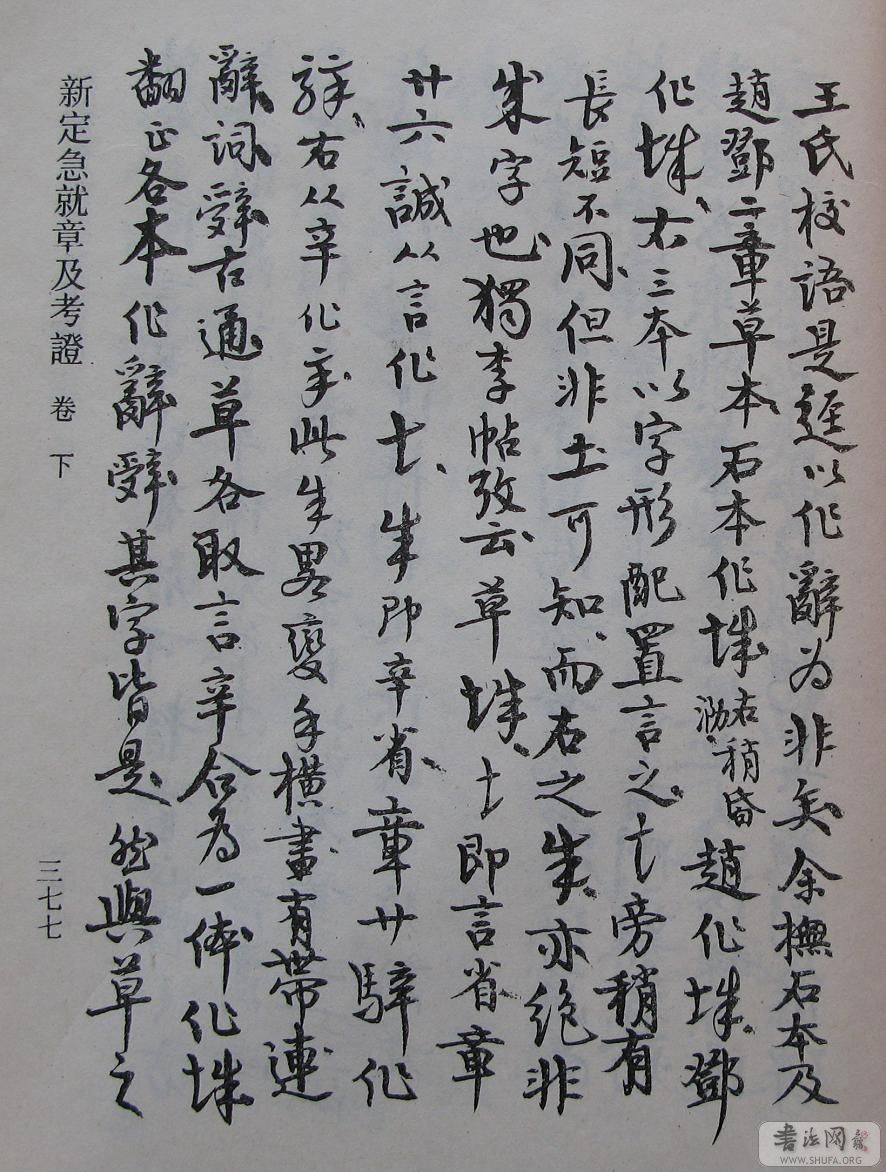 王氏校語是遂以作辭為非矣余橅石本及
趙鄧二章草本石本作城右稍昏泐趙作城鄧
作城右三本以字形配置言之七旁稍有
長短不同但非土可知而右之朱亦絕非
朱字也獨李帖攷云草城十即言省章
廿六誠从言作七朱即辛省章廿騂作
右从辛作辛此朱畧變手橫畫有帶連
辭詞辤古通草各取言辛合為一体作城
翻正各本作辭辤其字皆是然與草之
新定急就章及考證 卷 下
三七七
書法网
WWW.SHUFA.ORG